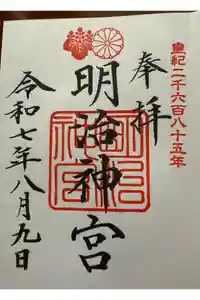 皇紀二千六百八十五年
奉拝
明治神宮
令和七年八月九日